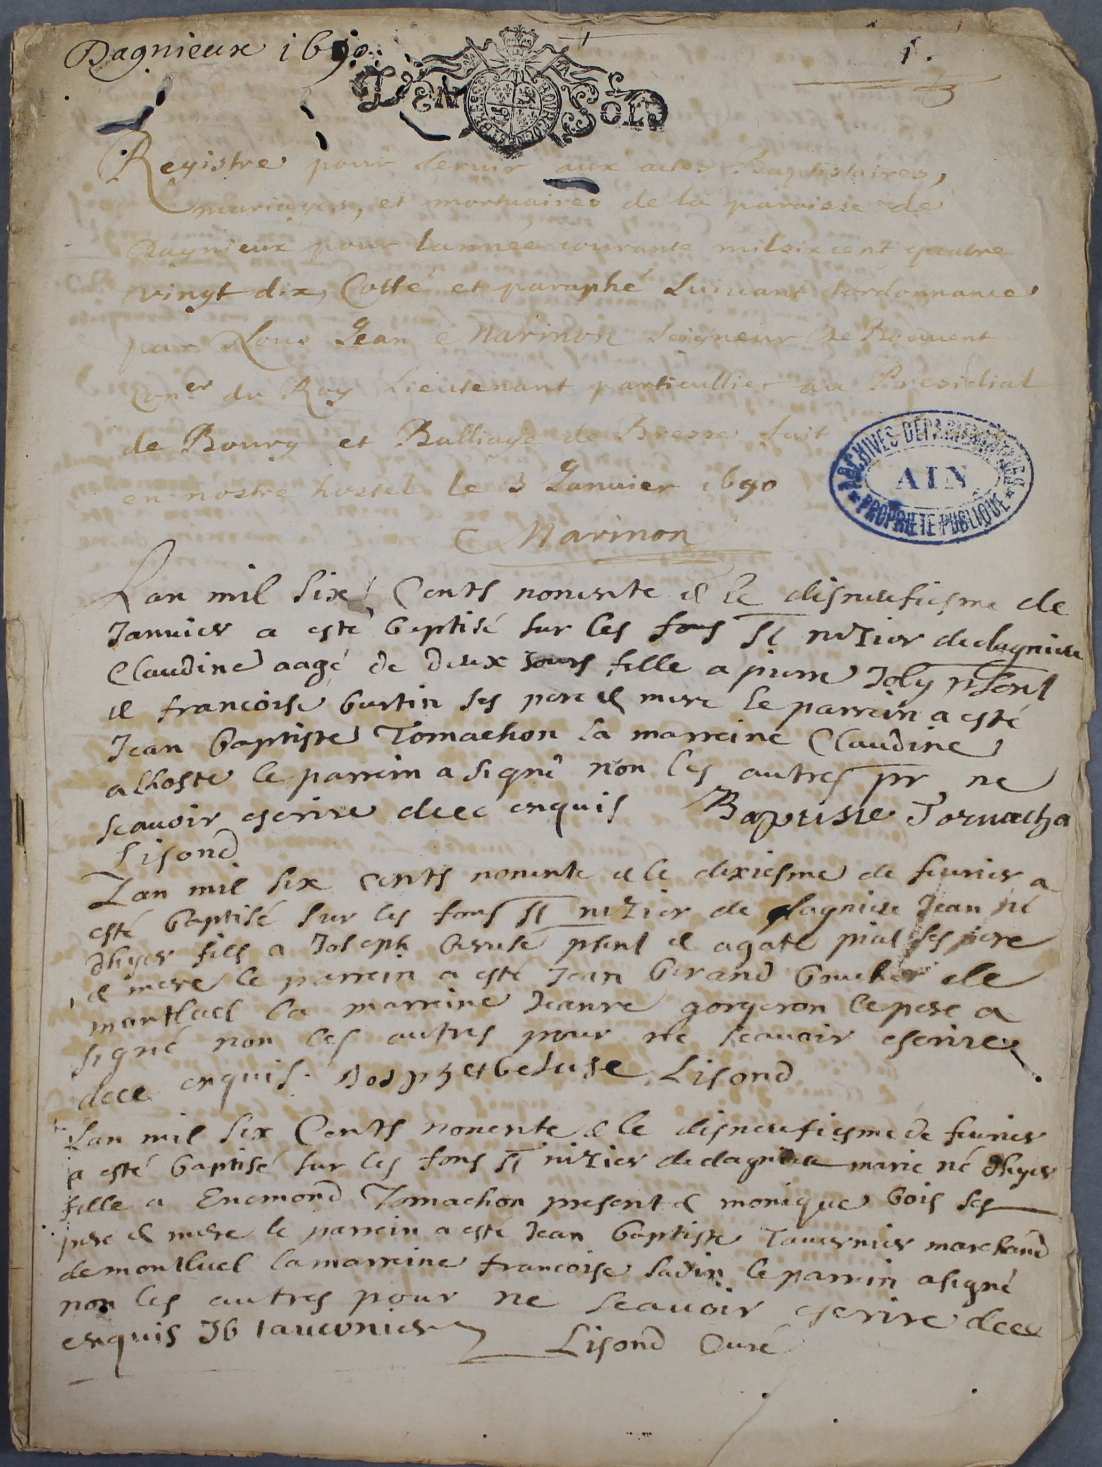 Dagnieux 1690.
1.
DEUX SOLS
Registre pour servir aux actes Baptistaires,
mariages, et mortuaires de la paroisse de
Dagnieux pour lannee courante mil six cent quatre
vingt dix, Cotté et paraphé suivant lordonnance
par Nous Jean C Marinon Seigneur de
Con.er du Roy Lieutenant particullier au Presidial
de Bourg et Balliage de Bresse fait
en nostre hostel le 3 Janvier 1690
C Marinon
ARCHIVES DEPARTEMENTALES
AIN
PROPRIETE PUBLIQUE
Lan mil six Cents nonente & le disneufiesme de
Janvier a esté baptisé sur les fons St nizier de dagnieu
Claudine aagé de deux Jours fille a pierre Joly psent
& francoise burtin ses pere & mere le parrein a esté
Jean baptiste Tomachon la marreine Claudine
alhoste le parrein a signé non les autres pr ne
scavoir escrire de ce enquis Baptiste Tornacha
Lisond
Lan mil six cents nonente & le dixiesme de feuvrier a
esté baptisé sur les fons St nizier de dagnieu Jean né
dhyer fils a Joseph psent & agate pial ses pere
& mere le parrein a esté Jean berand boucher de
montluel la marreine Jeanne gorgeron le pere a
signé non les autres pour ne scavoir escrire
de ce enquis. Lisond
Lan mil six Cents nonente & le disneufiesme de feuvrier
a esté baptisé sur les fons St nizier de dagnieu marie né dhyer
fille a Enemond Tomachon present & monique bois ses
pere & mere le parrein a esté Jean baptiste Tavernier marchand
de montluel la marreine francoise ladin le parrin a signé
non les autres pour ne scavoir escrire de ce
enquis Jb tauernier Lisond Curé